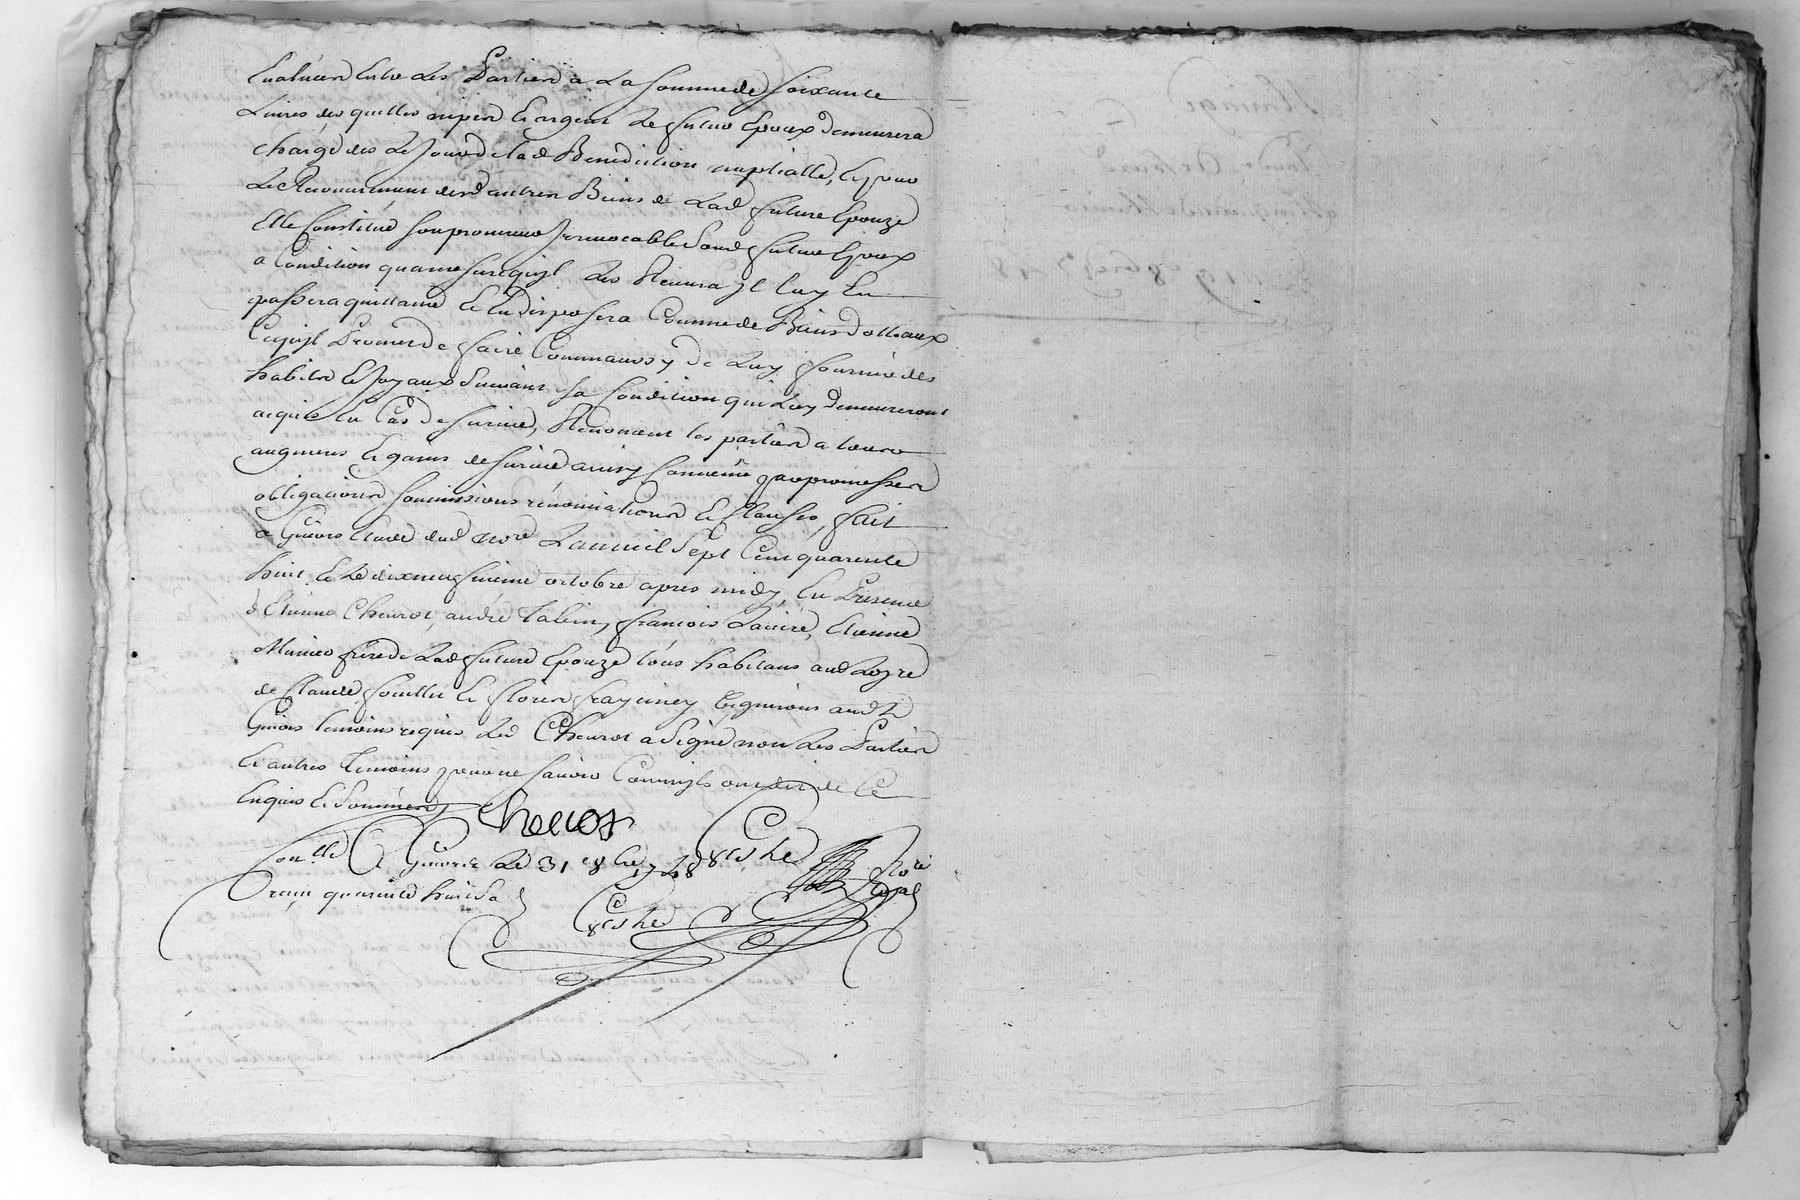 Evaluées Entre Les Parties a La somme de soixante
Livres des quelles nipes et argent Le futur Epoux demeurera
chargé des Le jour de lad Benediction nuptialle, Et pour
Le Recouvrement desd autres Biens de Lad future Epouze
Elle Constitue son procureur Irrevocable Led futur Epoux
a Condition qu'a mesure qu'il Les Retirera Il luy En
passera quittance Et En disposera Comme de Biens dottaux
Promet de faire Comme aussy de Luy fournir des
habits Et joyaux suivant sa Condition qui Luy demeureront
acquis En Cas de survie, Renoncent les parties a toute
augment Et gains de survie ainsy convenu par promesses
obligations soumissions rénonciations Et Clauses, fait
a Givors Etude dud nore L'an mil sept Cent quarente
huit Et Le dix neufvieme octobre apres midy, En Presence
d'Etienne Cheurot, andré françois Etienne
frere de Lad future Epouze tous habitans aud
de Claude Et aud
Givors temoins requis Led Cheurot a signé non Les Parties
Et autres temoins pour ne sçavoir Comm'ils ont dit de Ce
Enquis Et sommés
Cheurot
Conlle A Givors Le 31 8bre 1748
Reçu quarente huit s
nore
Royal